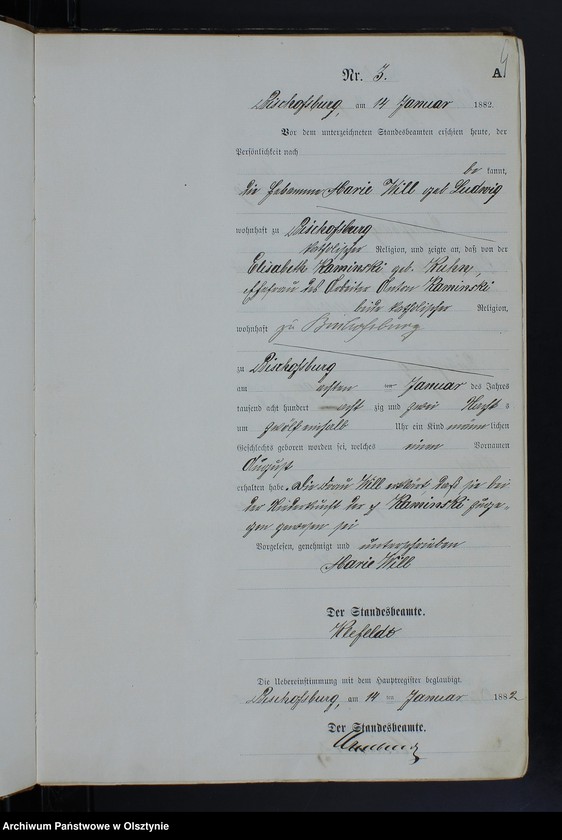 4
Nr. 3.
A
Bischofsburg, am 14 Januar 1882.
Vor dem unterzeichneten Standesbeamten erschien heute, der
Persönlichkeit nach
be kannt,
die Hebamme Marie Will geb Ludwig
wohnhaft zu Bischofsburg
katholischer Religion, und zeigte an, daß von der
Elisabeth Kaminski geb. Kuhn,
Ehefrau des Arbeiter Anton Kaminski
beide katholischer Religion,
wohnhaft zu Bischofsburg
zu Bischofsburg
am achten Januar des Jahres
tausend acht hundert acht zig und zwei Nachts
um zwölf einhalb Uhr ein Kind männ lichen
Geschlechts geboren worden sei, welches einen Vornamen
August
erhalten habe. Die Frau Will erklärt, daß sie bei
der Niederkunft der Kaminski zuge-
gen gewesen sei
Vorgelesen, genehmigt und unterschrieben
Marie Will
Der Standesbeamte.
Die Uebereinstimmung mit dem Hauptregister beglaubigt.
Bischofsburg, am 14 ten Januar 1882
Der Standesbeamte.
Archiwum Państwowe w Olsztynie